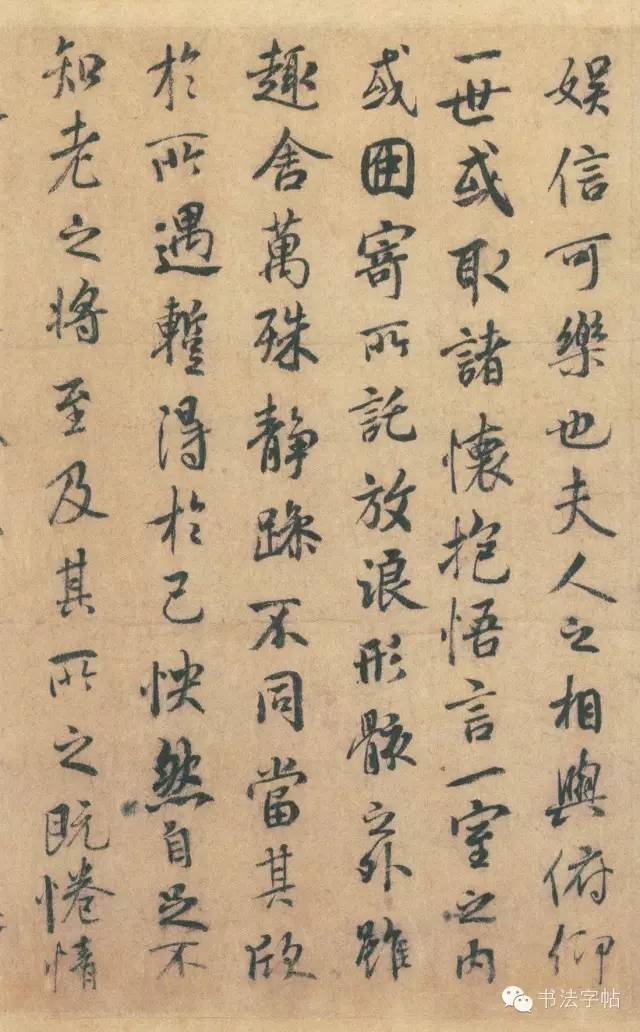 娱信可樂也夫人之相與俯仰
一世或取諸懷抱悟言一室之内
或因寄所託放浪形骸之外雖
趣舍萬殊静躁不同當其欣
於所遇蹔得於己怏然自足不
知老之將至及其所之既惓情
书法字帖